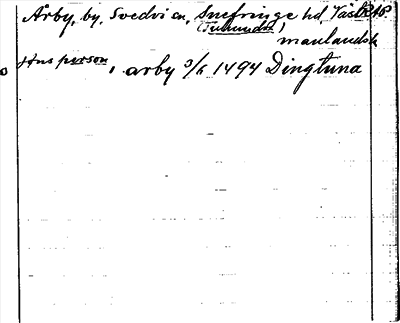 Årby, by, Svedvi sn, Snefringe hd, Västml.
(Tuhundra)
manlandsk
Jöns person, arby 3/6 1494 Dingtuna